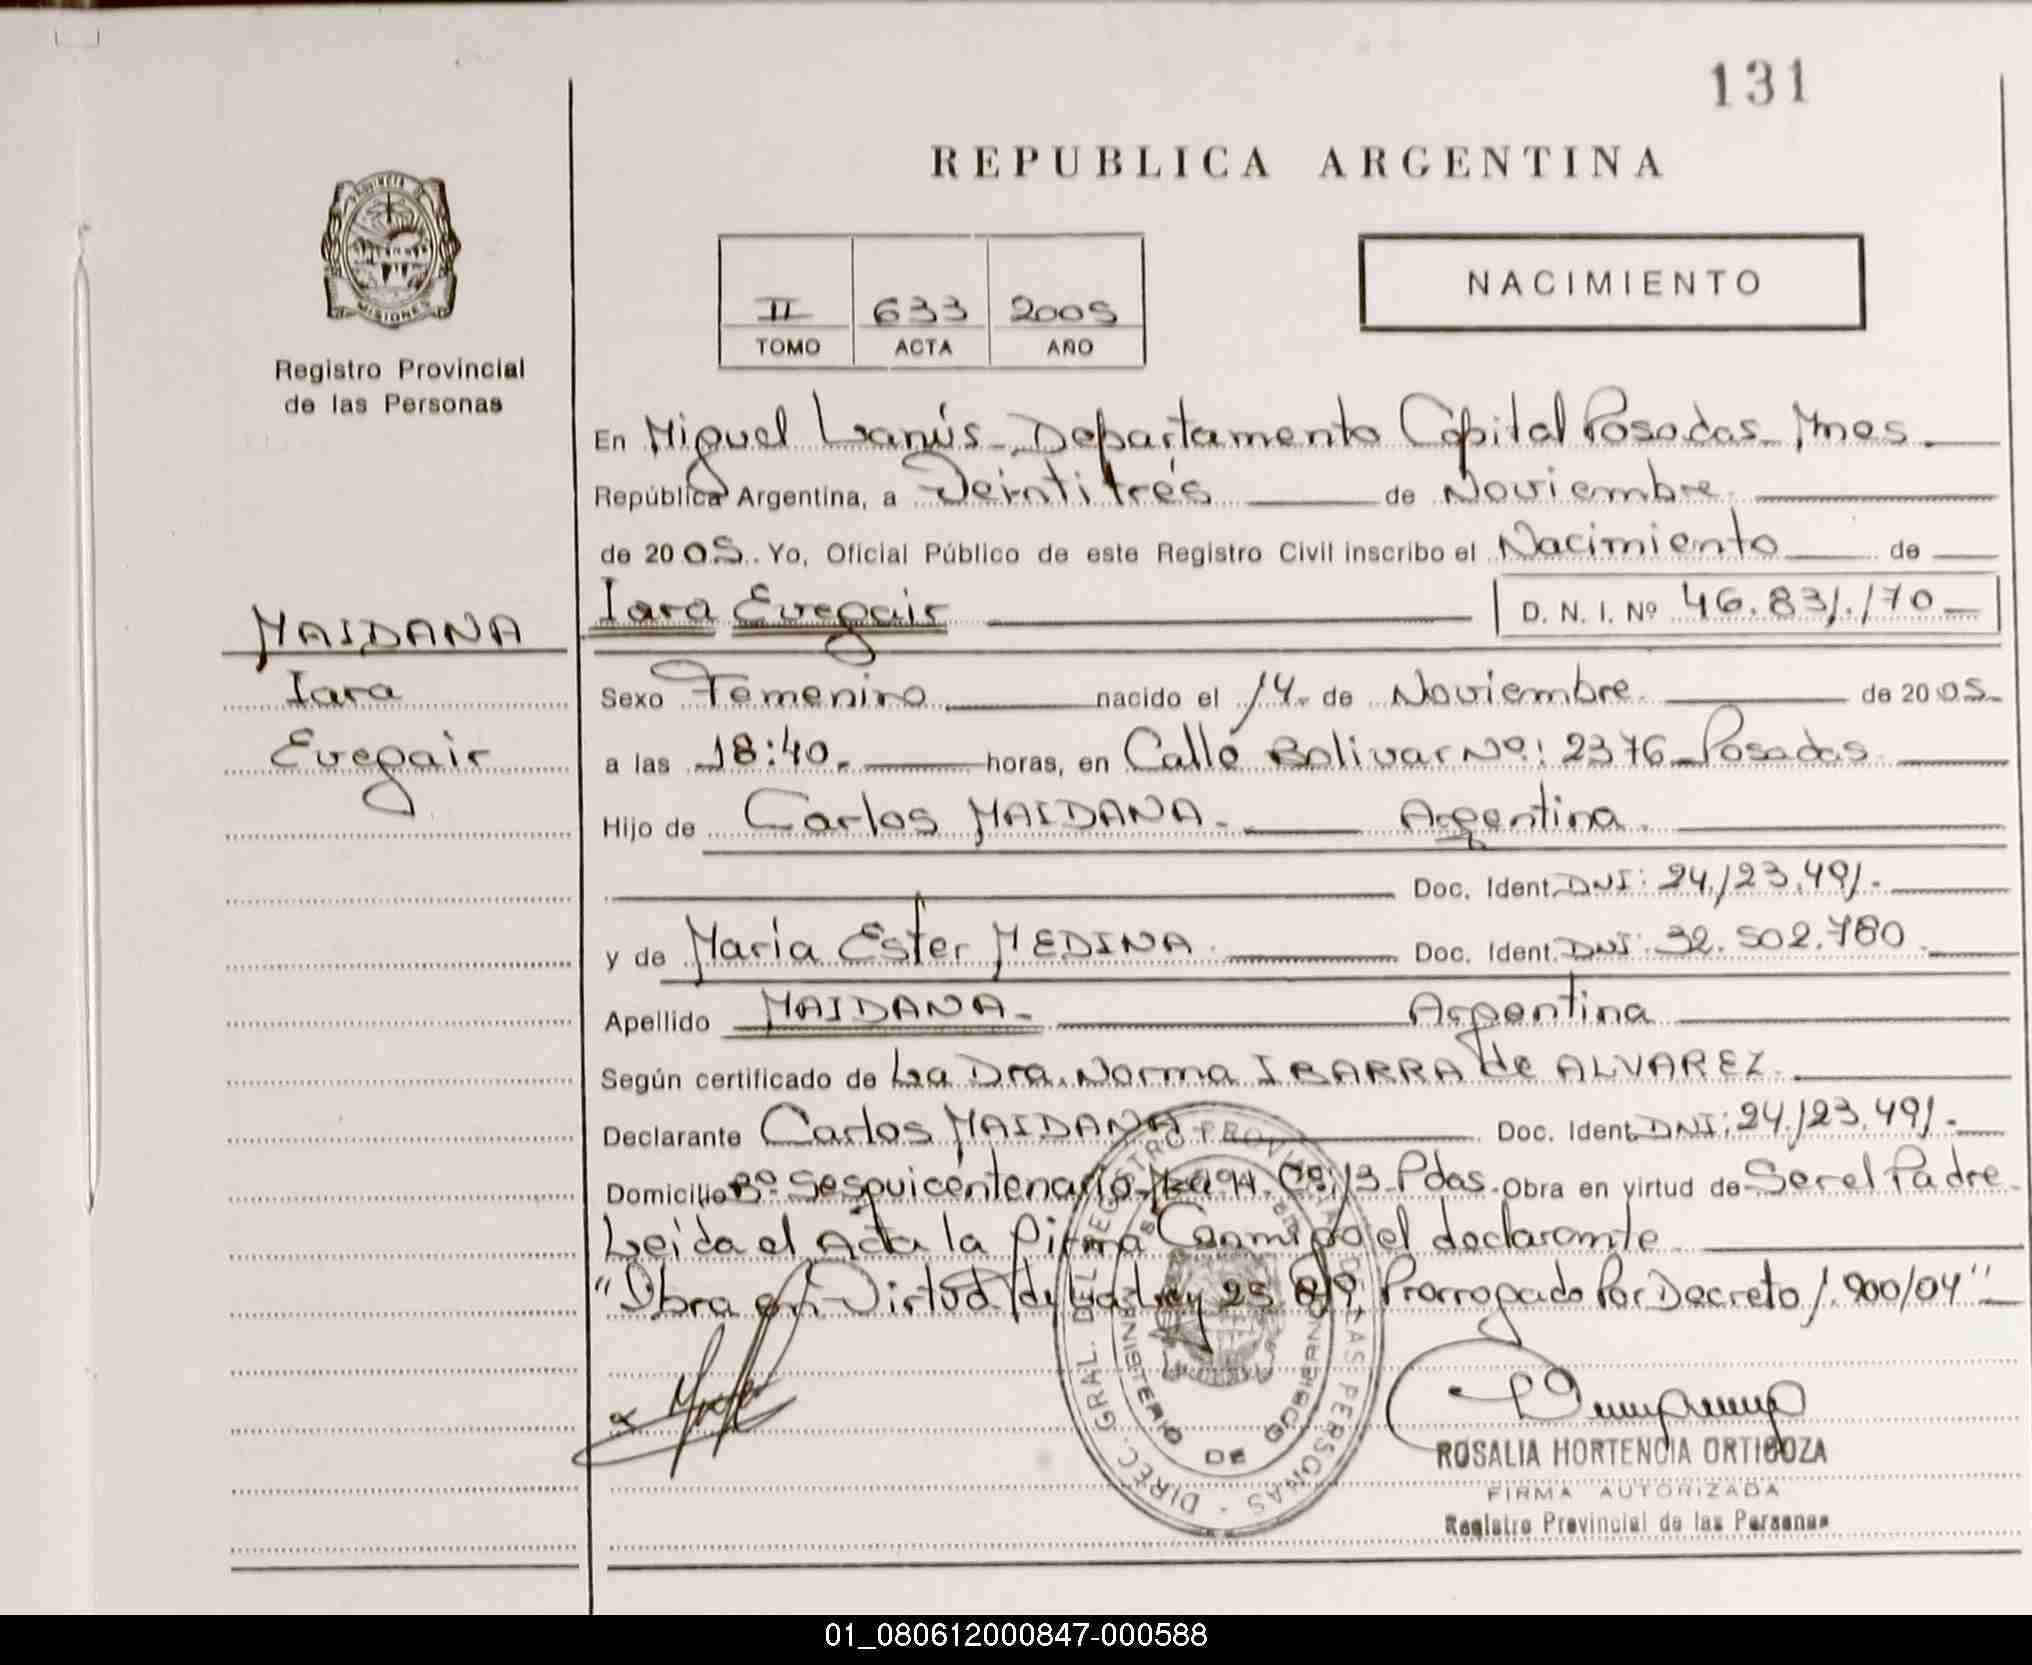 131
REPUBLICA ARGENTINA
PROVINCIA DE MISIONES
Registro Provincial
de las Personas
II 633 2005
TOMO ACTA AÑO
NACIMIENTO
En Miguel Lanús - Departamento Capital Posadas - Mnes.
República Argentina, a Veintitrés de Noviembre.
de 2005. Yo, Oficial Público de este Registro Civil inscribo el Nacimiento de
Iara Evegair D. N. I. Nº 46.831.170
MAIDANA
Iara
Evegair
Sexo Femenino nacido el 14. de Noviembre. de 2005
a las 18:40. horas, en Calle Bolivar Nº: 2376 - Posadas
Hijo de Carlos MAIDANA. Argentina.
Doc. Ident. DNI: 24.123.491.
y de María Ester MEDINA. Doc. Ident. DNI: 32.502.780
Apellido MAIDANA. Argentina
Según certificado de La Dra. Norma IBARRA de ALVAREZ.
Declarante Carlos MAIDANA Doc. Ident. DNI: 24.123.491.
Domicilio Bº Sesquicentenario Pdas. Obra en virtud de Ser el Padre.
Leida el Acta la firma Conmigo el declarante
"Obra en Virtud de la Ley 25.819 Prorrogado Por Decreto 1.900/04"
DIREC. GRAL. DEL REGISTRO PROVINCIAL DE LAS PERSONAS
MINISTERIO DE GOBIERNO
ROSALIA HORTENCIA ORTIGOZA
FIRMA AUTORIZADA
Registro Provincial de las Personas
01_080612000847-000588